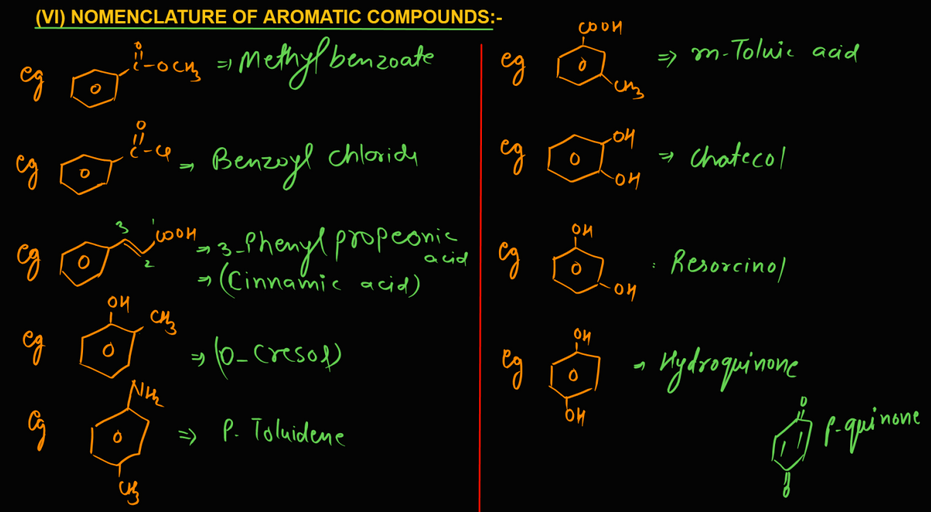 (VI) NOMENCLATURE OF AROMATIC COMPOUNDS:-
eg
O
C
OCH3
⇒ Methylbenzoate
eg
O
C-Cl
⇒ Benzoyl chloride
eg
3
2
1
COOH
⇒ 3-Phenyl propeonic
acid
⇒ (Cinnamic acid)
eg
OH
CH3
⇒ (O-Cresol)
eg
NH2
CH3
⇒ P. Toluidene
eg
COOH
CH3
⇒ m-Toluic acid
eg
OH
OH
⇒ Chatecol
eg
OH
OH
: Resorcinol
eg
OH
OH
⇒ Hydroquinone
O
O
P-quinone